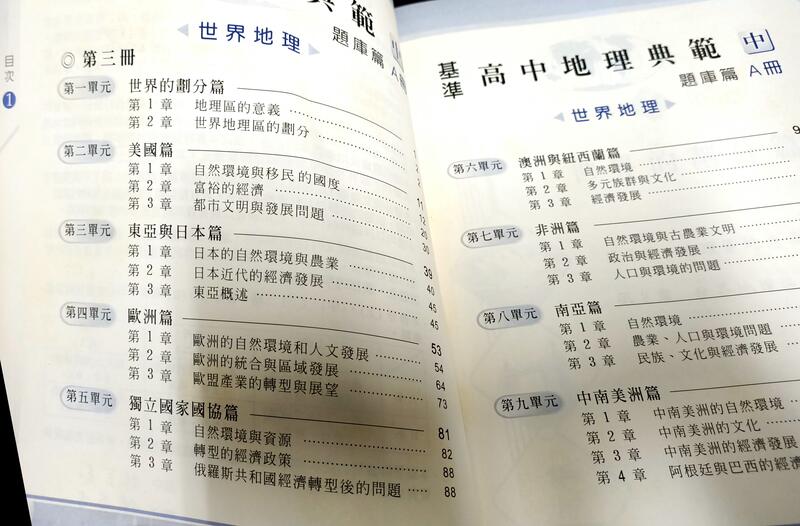 目次 1
典範
世界地理
題庫篇 A冊
◎ 第三冊
第一單元 世界的劃分篇
第1章 地理區的意義
第2章 世界地理區的劃分
第二單元 美國篇
第1章 自然環境與移民的國度
第2章 富裕的經濟
第3章 都市文明與發展問題
第三單元 東亞與日本篇 39
第1章 日本的自然環境與農業 40
第2章 日本近代的經濟發展 45
第3章 東亞概述 45
第四單元 歐洲篇 53
第1章 歐洲的自然環境和人文發展 54
第2章 歐洲的統合與區域發展 64
第3章 歐盟產業的轉型與展望 73
第五單元 獨立國家國協篇 81
第1章 自然環境與資源 82
第2章 轉型的經濟政策 88
第3章 俄羅斯共和國經濟轉型後的問題 88
基準 高中地理典範 中
題庫篇 A冊
世界地理
第六單元 澳洲與紐西蘭篇 9
第1章 自然環境
第2章 多元族群與文化
第3章 經濟發展
第七單元 非洲篇
第1章 自然環境與古農業文明
第2章 政治與經濟發展
第3章 人口與環境的問題
第八單元 南亞篇
第1章 自然環境
第2章 農業、人口與環境問題
第3章 民族、文化與經濟發展
第九單元 中南美洲篇
第1章 中南美洲的自然環境
第2章 中南美洲的文化
第3章 中南美洲的經濟發展
第4章 阿根廷與巴西的經